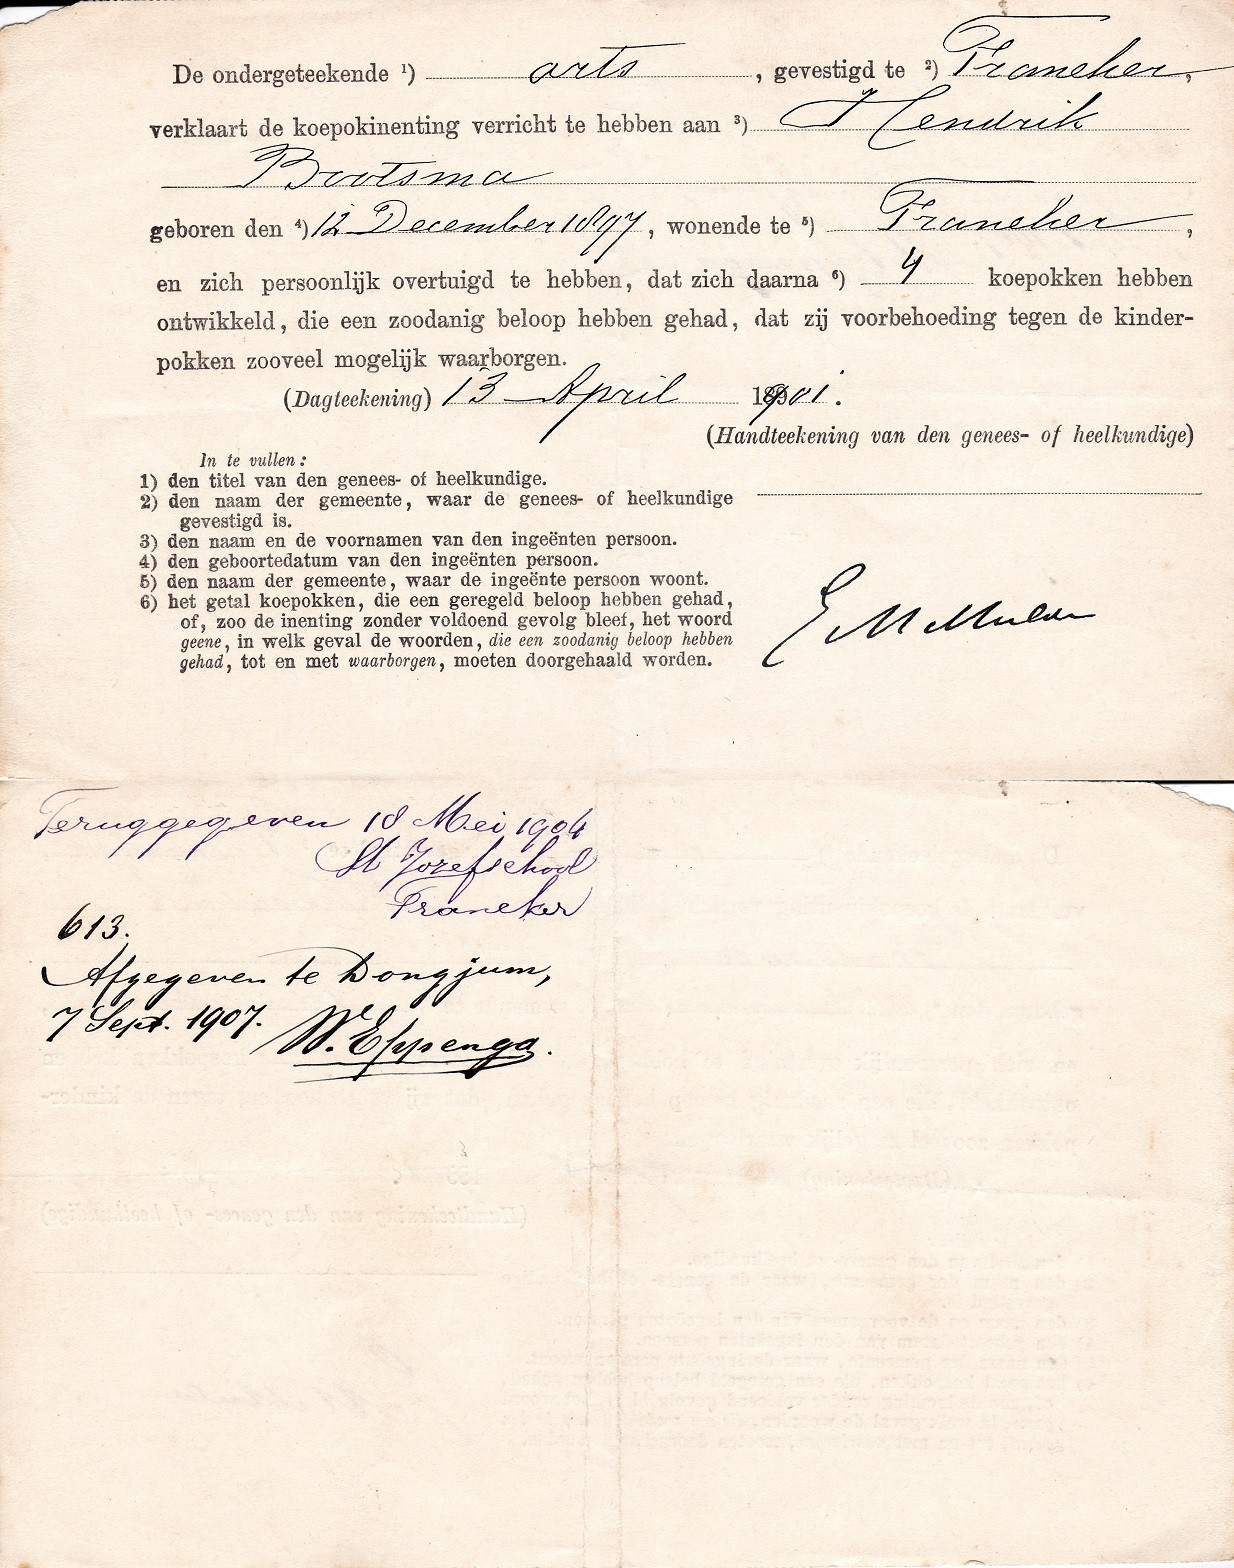 De ondergeteekende ¹) arts, gevestigd te ²) Franeker,
verklaart de koepokinenting verricht te hebben aan ³) Hendrik
Bootsma
geboren den ⁴) 12 December 1897, wonende te ⁵) Franeker,
en zich persoonlijk overtuigd te hebben, dat zich daarna ⁶) 4 koepokken hebben
ontwikkeld, die een zoodanig beloop hebben gehad, dat zij voorbehoeding tegen de kinder-
pokken zooveel mogelijk waarborgen.
(Dagteekening) 13 April 1901.
(Handteekening van den genees- of heelkundige)
In te vullen:
1) den titel van den genees- of heelkundige.
2) den naam der gemeente, waar de genees- of heelkundige
gevestigd is.
3) den naam en de voornamen van den ingeënten persoon.
4) den geboortedatum van den ingeënten persoon.
5) den naam der gemeente, waar de ingeënte persoon woont.
6) het getal koepokken, die een geregeld beloop hebben gehad,
of, zoo de inenting zonder voldoend gevolg bleef, het woord
geene, in welk geval de woorden, die een zoodanig beloop hebben
gehad, tot en met waarborgen, moeten doorgehaald worden.
Teruggegeven 18 Mei 1904
St Jozefschool
Franeker
613.
Afgegeven te Dongjum,
7 Sept. 1907. W. Eppenga.